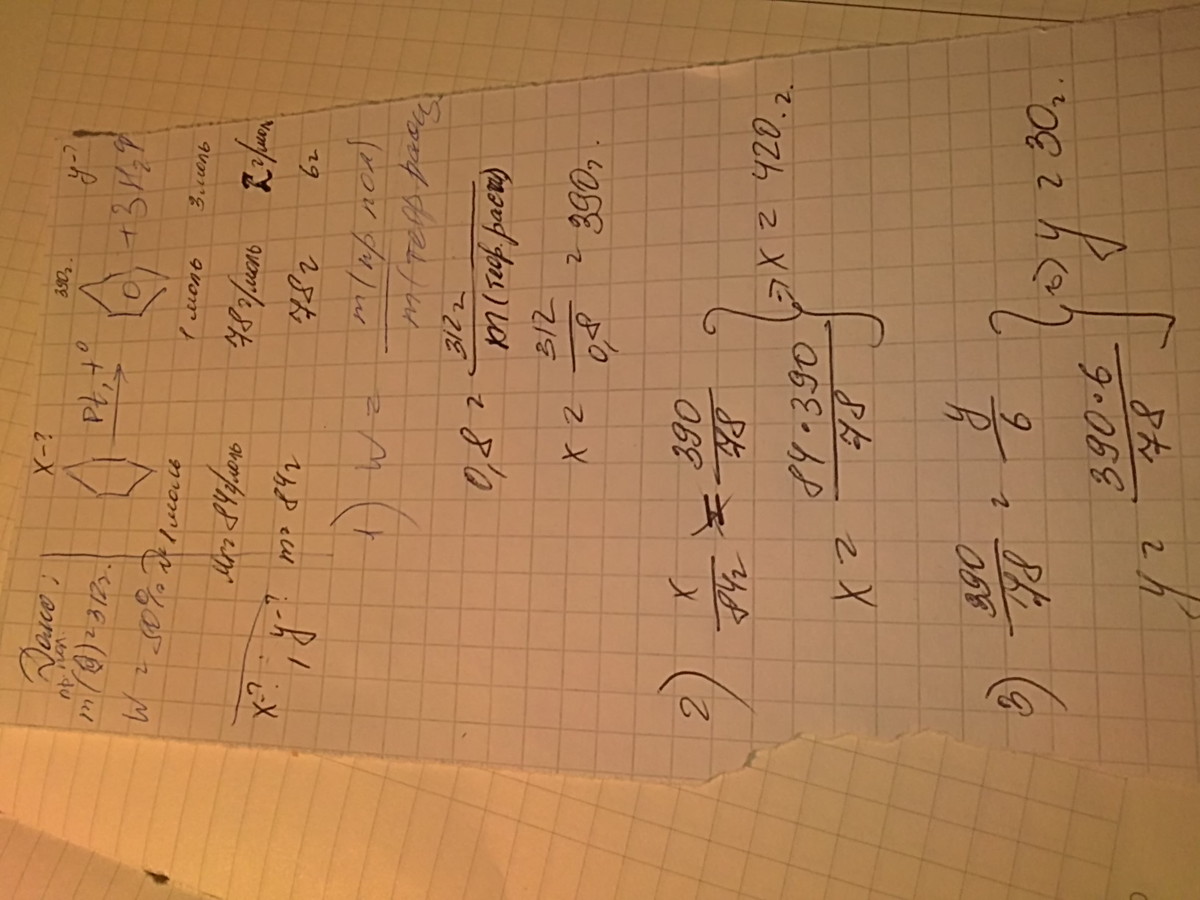 Дано: X-? 390г. y-?
пр. пол. Pt, t° + 3H₂↑
m( )=312г.
W = 80% ν=1моль 1 моль 3 моль
Mr=84г/моль 78г/моль 2г/моль
X-? ; y-? m=84г 78г 6г
1) W = m(пр. пол) / m(теор расч)
0,8 = 312г / m(теор. расч)
X = 312 / 0,8 = 390г.
2) X / 84г = 390 / 78
X = 84·390 / 78 } => X = 420.г.
3) 390 / 78 = y / 6
y = 390·6 / 78 } => y = 30г.